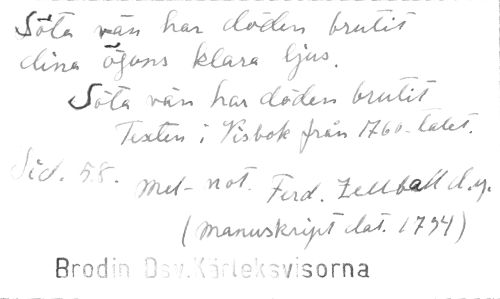 Söta vän har döden brutit
dina ögons klara ljus.
Söta vän har döden brutit
Texten i Visbok från 1760-talet.
Sid. 58. Mel- not. Ferd. Zellbell d.y.
(manuskript dat. 1794)
Brodin Dsv.Kärleksvisorna